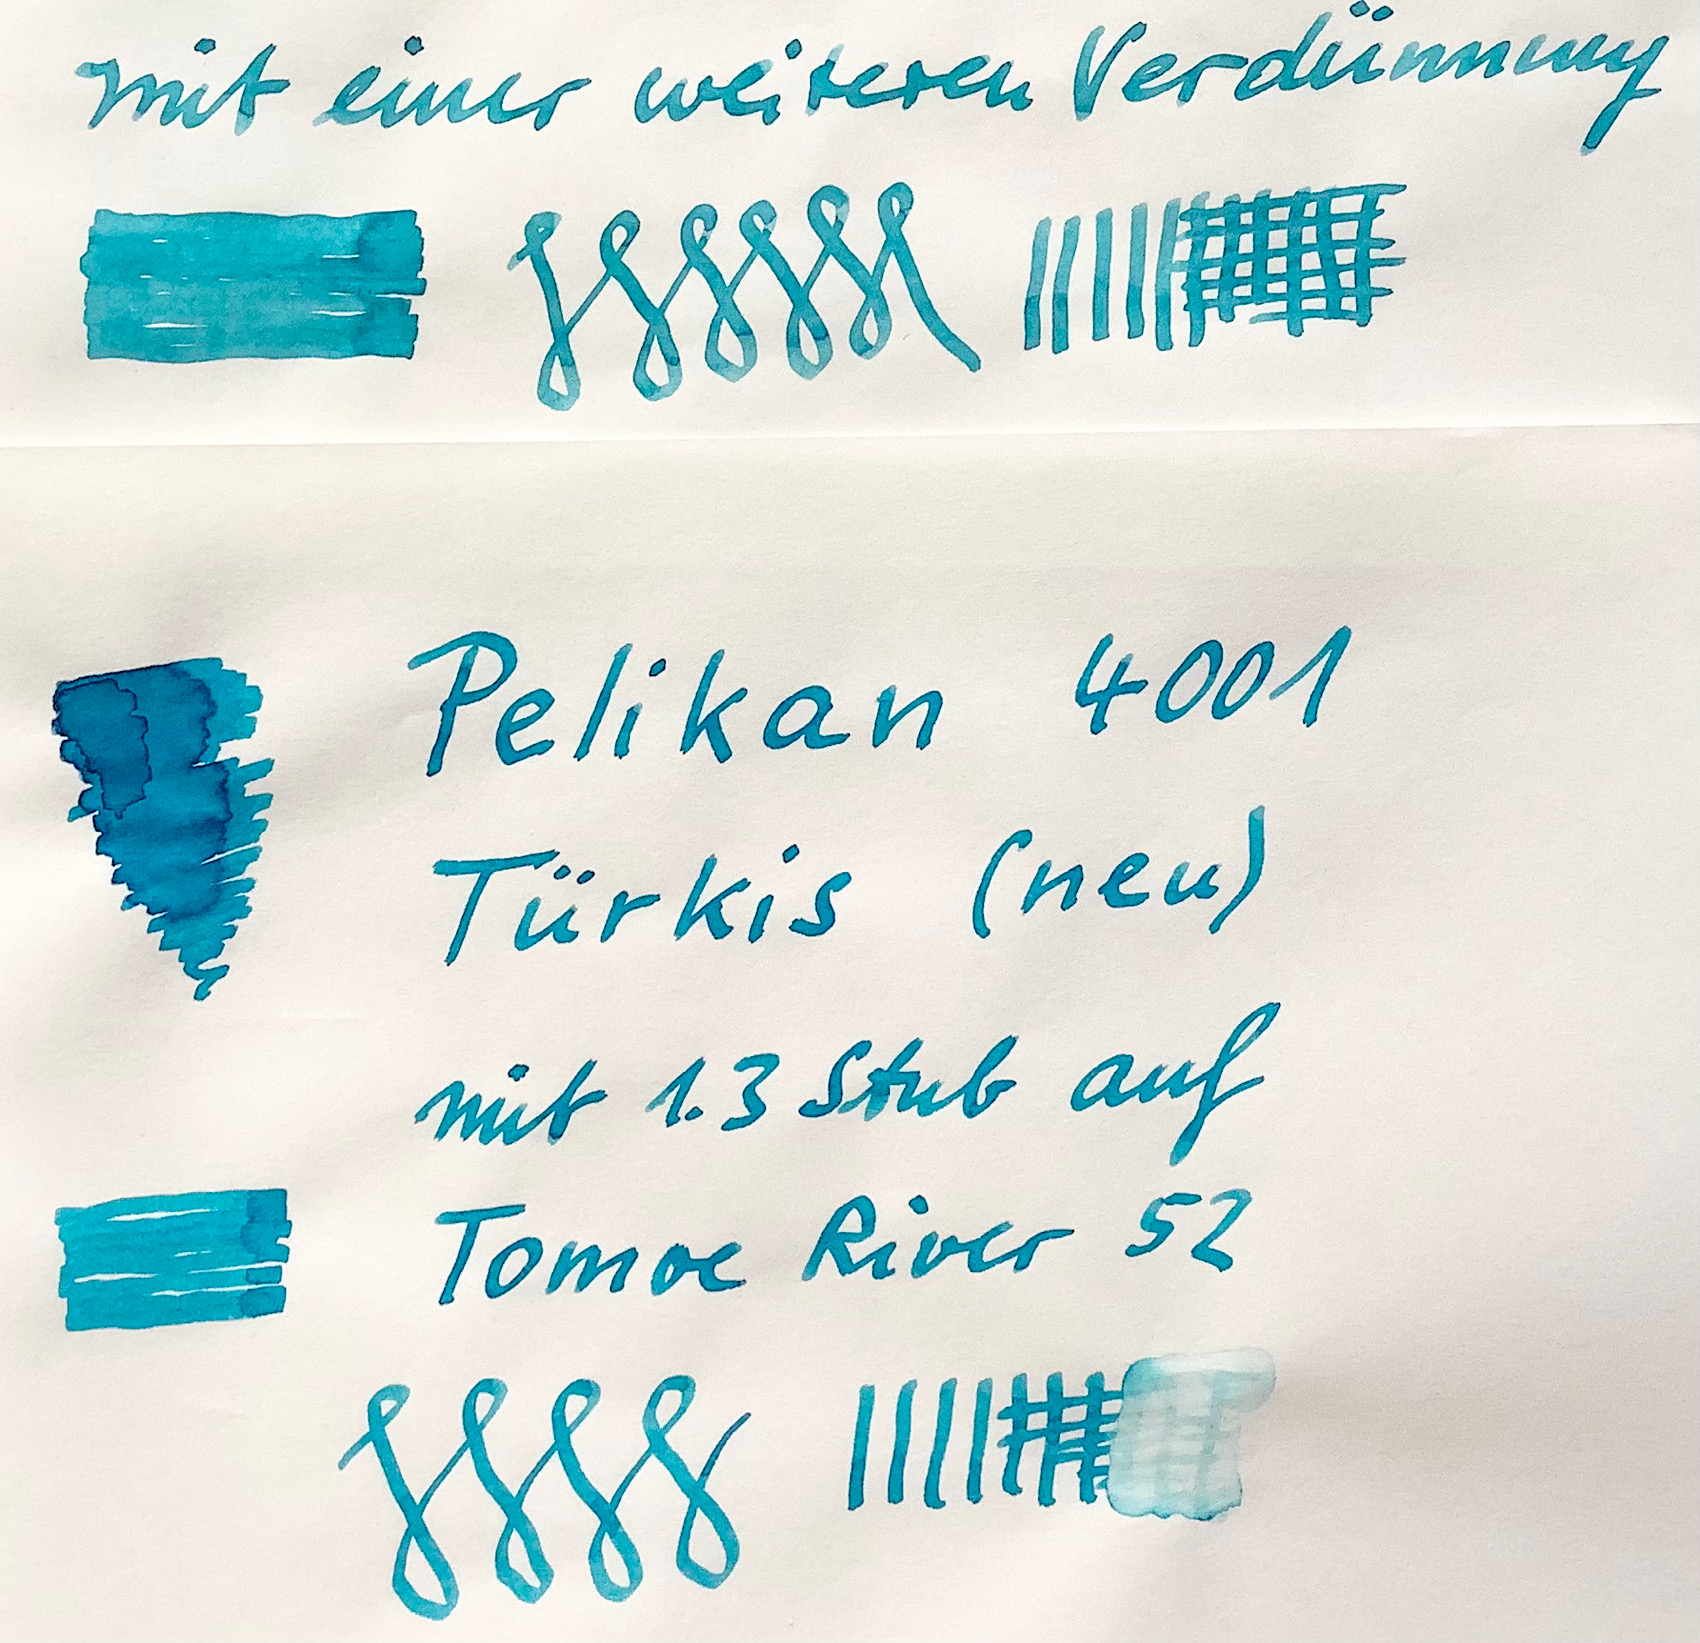 mit einer weiteren Verdünnung
Pelikan 4001
Türkis (neu)
mit 1.3 Stub auf
Tomoe River 52